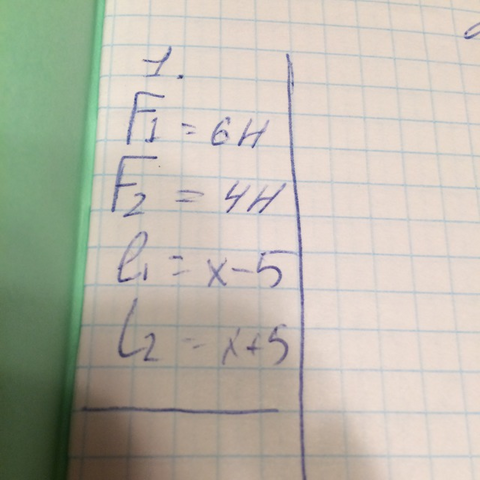 1.
F1 = 6Н
F2 = 4Н
l1 = x-5
l2 = x+5